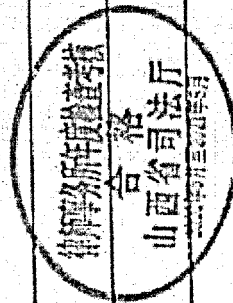 律师事务所年度检查考核
合格
山西省司法厅